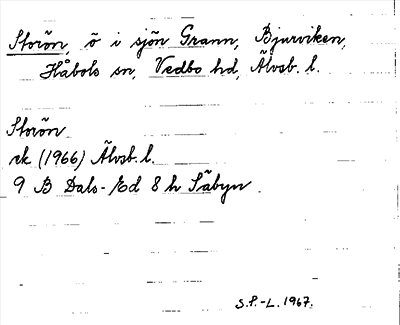 Storön, ö i sjön Grann, Bjurviken,
Håbols sn, Vedbo hd, Älvsb. l.
Storön
ek (1966) Älvsb. l.
9 B Dals-Ed 8 h Säbyn.
S.P.-L. 1967.